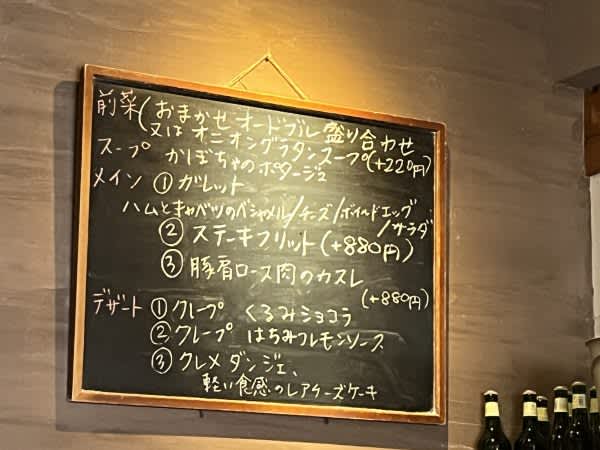 前菜(おまかせオードブル盛り合わせ
又はオニオングラタンスープ(+220円)
スープ かぼちゃのポタージュ
メイン ①ガレット
ハムとキャベツのベシャメル/チーズ/ボイルドエッグ
/サラダ
②ステーキフリット(+880円)
③豚肩ロース肉のカスレ
(+880円)
デザート ①クレープ くるみショコラ
②クレープ はちみつレモンソース
③クレメダンジェ、
軽い食感のレアチーズケーキ